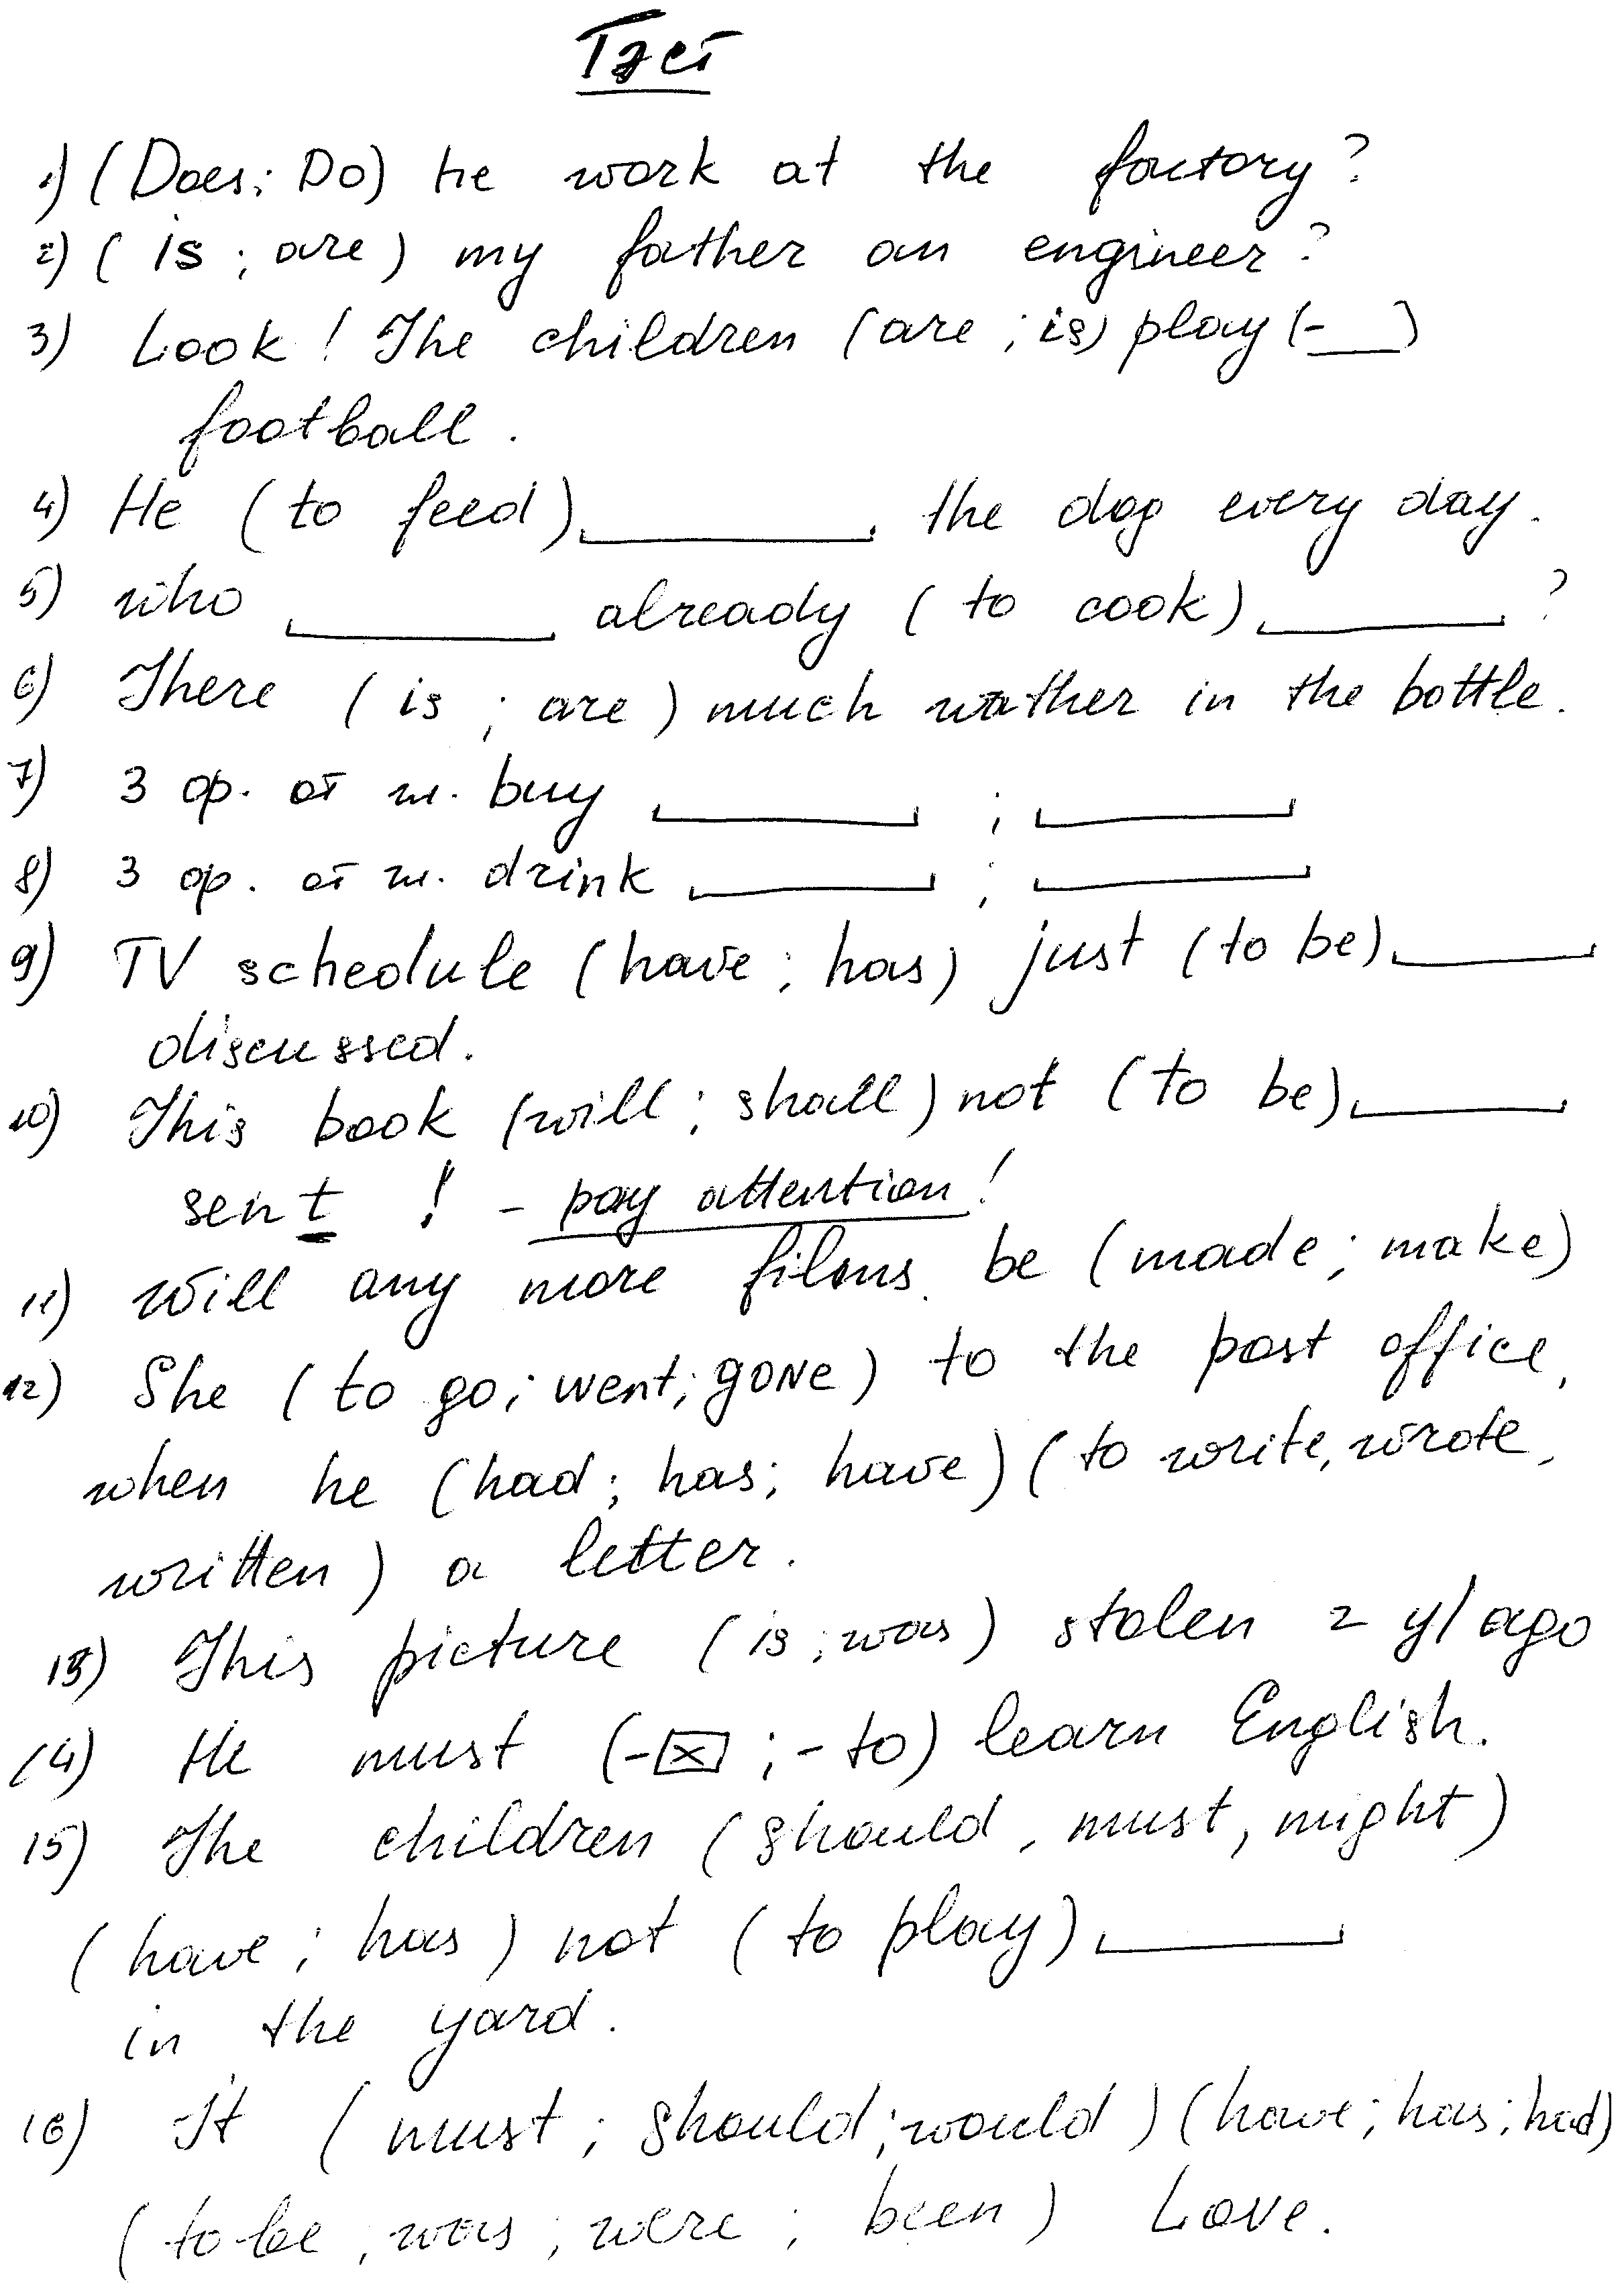 Тэст
1) (Does; Do) he work at the factory?
2) ( is ; are ) my father an engineer?
3) Look ! The children (are ; is) play (-__)
football .
4) He ( to feed) ________ the dog every day.
5) who ________ already ( to cook) ________ ?
6) There ( is ; are ) much wather in the bottle.
7) 3 ф. от гл. buy ________ ; ________
8) 3 ф. от гл. drink ________ ; ________
9) TV schedule (have ; has) just (to be) ________
discussed.
10) This book (will ; shall) not (to be) ________
sent ! - pay attention !
11) Will any more films be (made ; make)
12) She ( to go; went; gone) to the post office,
when he (had ; has; have) (to write, wrote,
written ) a letter.
13) This picture ( is ; was ) stolen 2 y/ ago
14) He must (-☒ ; - to) learn English.
15) The children (should , must, might)
( have ; has ) not ( to play) ________
in the yard.
16) It ( must ; should ; would ) (have ; has ; had)
( to be ; was ; were ; been ) Love.